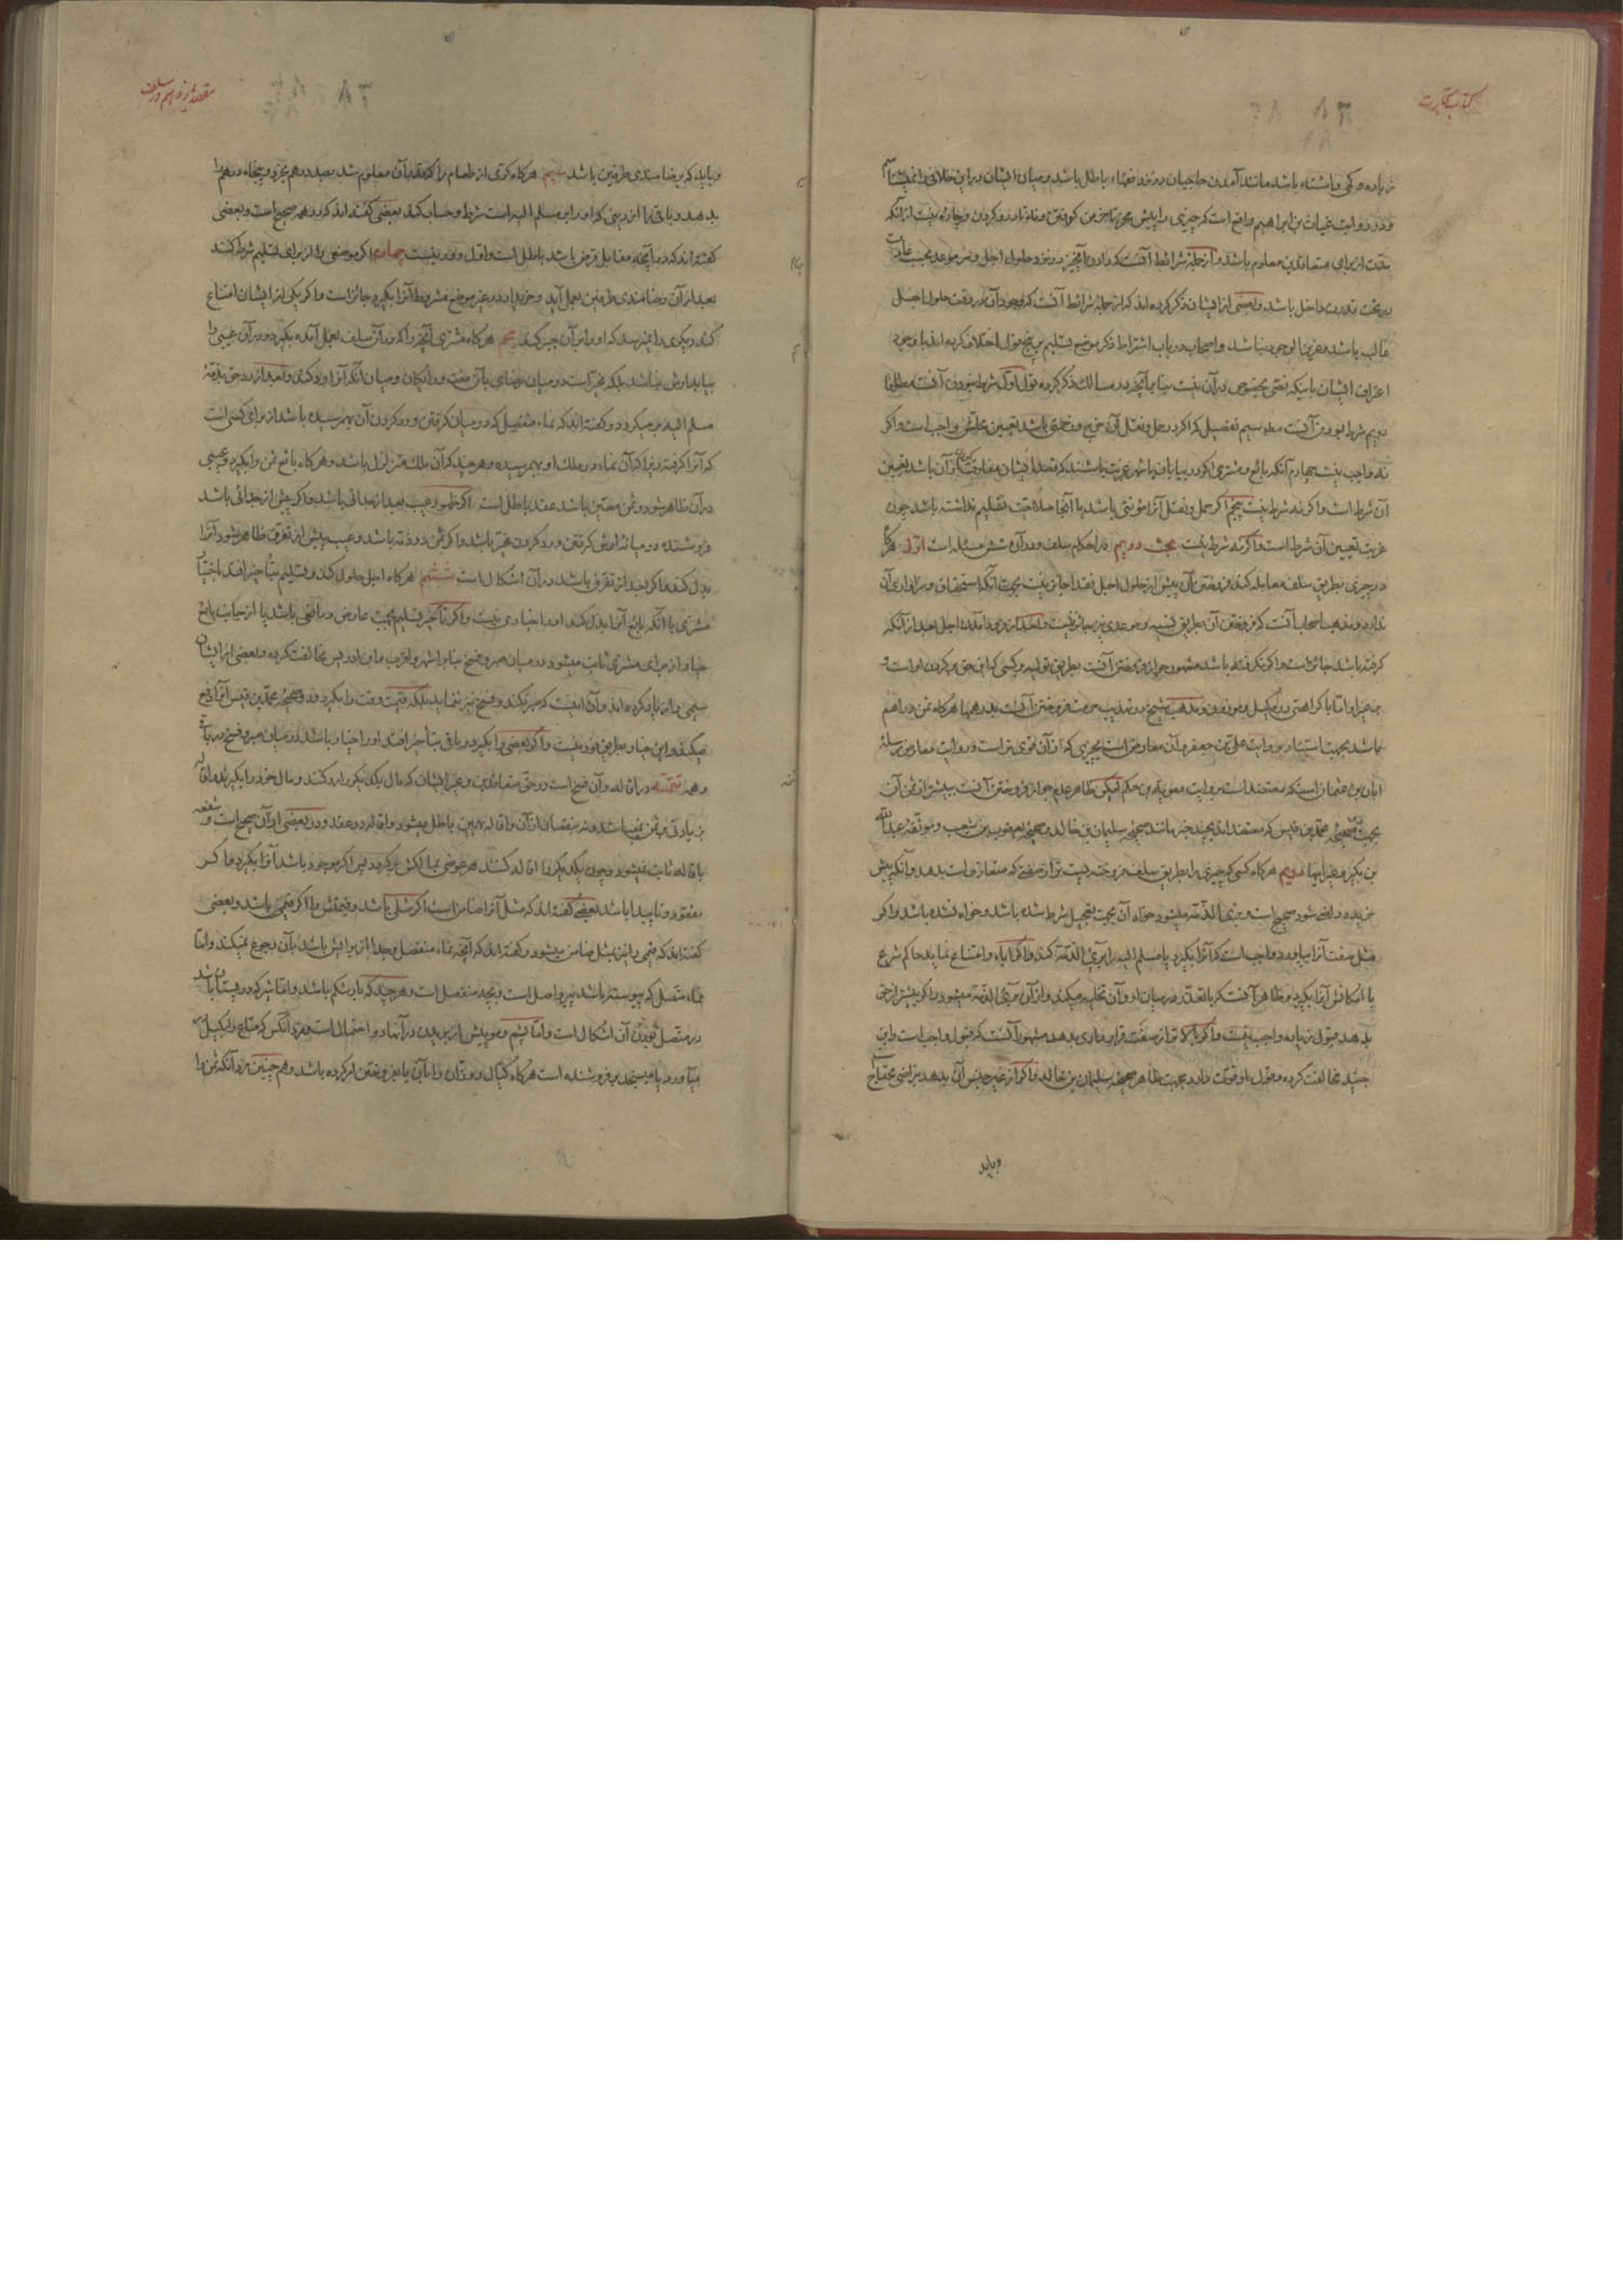 کتاب تجارت
زیاده و کمی و اشتباه باشد مانند آمدن حاجیان و روز و فقهاء باطل باشد و میان ایشان در این خلافی
و در روایت غیاث بن ابراهیم واقع است که چیزی را پیش مخر تا خرمن کوفتن
مدت از برای متعاقدین معلوم باشد و از جمله شرائط آنست که دادن آنچیز در نزد حلول اجل و سر موعد بحسب عادت
در تحت قدرت داخل باشد و بعضی از ایشان ذکر کرده اند که از جمله شرائط آنست که وجود آن در وقت حلول اجل
غالب باشد و عزیز الوجود نباشد و اصحاب در باب اشتراط ذکر موضع تسلیم بر پنج قول اختلاف کرده اند با وجود
اعتراف ایشان باینکه نصی بخصوص در آن نیست بنا بر آنچه در مسالک ذکر کرده قول اول شرط نبودن آنست مطلقا
دویم شرط بودن آنست مطلقا سیم تفصیل که اگر در حمل و نقل آن خرج و زحمتی باشد تعیین محلش واجب است و اگر
نه واجب نیست چهارم آنکه بائع و مشتری اگر در بیابان یا شهر غربت باشند که قصد ایشان مفارقت از آن باشد تعیین
آن شرط است و اگر نه شرط نیست پنجم اگر حمل و نقل آنرا مؤنتی باشد یا آنجا صلاحیت تسلیم نداشته باشد چون
غربت تعیین آن شرط است و اگر نه شرط نیست مبحث دویم در احکام سلف و در آن شش مسئله است اول هرگاه
در چیزی بطریق سلف معامله کند فروختن آن پیش از حلول اجل نقدا جائز نیست بجهت آنکه استحقاق و سزاواری آن
ندارد و مذهب اصحاب آنست که فروختن آن بطریق نسیه و موعدی نیز جائز نیست و بعد از در آمدن اجل بعد از آنکه
گرفته باشد جائز است و اگر نگرفته باشد مشهور جواز فروختن آنست بطریق تولیه و کسی که این حق بر گردن او است و
بر غیر او اما با کراهتی در مکیل و موزون و مذهب شیخ در تهذیب حرمت فروختن آنست بدرهمها هرگاه ثمن دراهم
باشد بجهت استناد بروایت علی بن جعفر و آن معارض است بچیزی که از آن قوی تر است و روایت معارض مرسله
ابان بن عثمان است که معتضد است بروایت معویة بن حکم لیکن ظاهر عدم جواز فروختن آنست ببیشتر از ثمن آن
بجهت صحیحه محمد بن قیس که معتضد است بچند خبر مانند صحیحه سلیمان بن خالد و صحیحه یعقوب بن شعیب و موثقه عبدالله
بن بکیر و غیر اینها دویم هرگاه کسی که چیزی را بطریق سلف فروخته پست تر از صفتی که متعارف است بدهد و آنکه پیش
خریده راضی شود صحیح است و بری الذمه میشود خواه آن بجهت تعجیل شرط شده باشد و خواه نشده باشد و اگر
مثل صفت آنرا بیاورد واجب است که آنرا بگیرد یا مسلم الیه را بری الذمه کند و اگر اباء و امتناع نماید حاکم شرع
با امکانش آنرا بگیرد و ظاهر آنست که با تعذر در میان او و آن تخلیه میکند و از آن بری الذمه میشود و اگر بیشتر از حق
بدهد قبول زیاده واجب نیست و اگر بالاتر از صفت قرار دادی بدهد مشهور آنست که قبول واجب است و ابن
جنید مخالفت کرده و قول او قوت دارد بجهت ظاهر صحیحه سلیمان بن خالد و اگر از غیر جنس آن بدهد بتراضی محتاج
و باید
مقصد در سلف
۸۳
و باید که برضامندی طرفین باشد سیم هرگاه کری از طعام را که نقد آن معلوم شد بصد درهم بخرد و پنجاه درهم را
بدهد و باقی را از دینی که او را بر مسلم الیه است شرط و حساب کند بعضی گفته اند که در همه صحیح است و بعضی
گفته اند که در آنچه مقابل قرض باشد باطل است و اول دور نیست چهارم اگر موضعی را از برای تسلیم شرط کنند
بعد از آن رضامندی طرفین بعمل آید و خریدار در غیر موضع مشروط آنرا بگیرد جائز است و اگر یکی از ایشان امتناع
کند دیگری را نمیرسد که او را بر آن جبر کند پنجم هرگاه مشتری آنچیز را که در آن سلف بعمل آمده بگیرد و در آن عیبی را
بیابد ارش نباشد بلکه مخیر است در میان رضای بآن مفت و رایگان و میان آنکه آنرا رد کند و بعد از رد حق بذمه
مسلم الیه بر میگردد و گفته اند که نماء منفصل که در میان گرفتن و رد کردن آن بهم رسیده باشد از برای کسی است
که آنرا گرفته زیرا که آن نماء در ملک او بهم رسیده و هر چند که آن ملک متزلزل باشد و هرگاه بائع ثمن را بگیرد و عیبی
در آن ظاهر شود و ثمن معین باشد عقد باطل است اگر ظهور عیب بعد از جدائی باشد و اگر پیش از جدائی باشد
فروشنده در میانه ارش گرفتن و رد کردن مخیر باشد و اگر ثمن در ذمه باشد و عیب پیش از تفرق ظاهر شود آنرا
بدل کند و اگر بعد از تفرق باشد در آن اشکال است ششم هرگاه اجل حلول کند و تسلیم بتأخیر افتد باختیار
مشتری یا آنکه بائع آنرا بذل کند او را خیاری نیست و اگر تأخیر تسلیم بجهت عارض و مانعی باشد یا از جانب بائع
خیار از برای مشتری ثابت میشود در میان صبر و فسخ بنا بر اشهر و اقرب و ابن ادریس مخالفت کرده و بعضی از ایشان
سیمی را زیاد کرده اند و آن اینست که صبر نکند و فسخ نیز ننماید بلکه قیمت وقت را بگیرد و صحیحه محمد بن قیس آنرا دفع
میکند و این خیار بطریق فور نیست و اگر بعضی را بگیرد و باقی بتأخیر افتد او را خیار باشد در میان صبر و فسخ در باقی
و همه تتمه در اقاله و آن فسخ است در حق متعاقدین و غیر ایشان که مال یکدیگر را رد کنند و مال خود را بگیرند و اقاله
بزیادتی بر ثمن نمیباشد و نه بنقصان از آن و اقاله بهمین باطل میشود و اقاله در عقد و در بعضی از آن صحیح است و شفعه
باقاله ثابت نمیشود و چون یکدیگر را اقاله کنند هر عوضی بمالکش بر میگردد پس اگر موجود باشد آنرا بگیرد و اگر
مفقود و ناپیدا باشد بعضی گفته اند که مثل آنرا ضامن است اگر مثلی باشد و قیمتش را اگر قیمی باشد و بعضی
گفته اند که قیمی را نیز بمثل ضامن میشود و گفته اند که آنچه نماء منفصل و جدا از برایش باشد بآن رجوع نمیکند و اما
نماء متصل که پیوسته باشد پیرو اصل است و بچه منفصل است و هر چند که در شکم باشد و اما شیر که در پستان باشد
در متصل بودن آن اشکال است و اما پشم و مو پیش از بریدن در آنها دو احتمال است و مزد آنکس که متاع را بکیل
میآورد یا میسنجد بر فروشنده است هرگاه کیال و وزان را بآن یا بفروختن امر کرده باشد و هم چنین مزد آنکه ثمن را